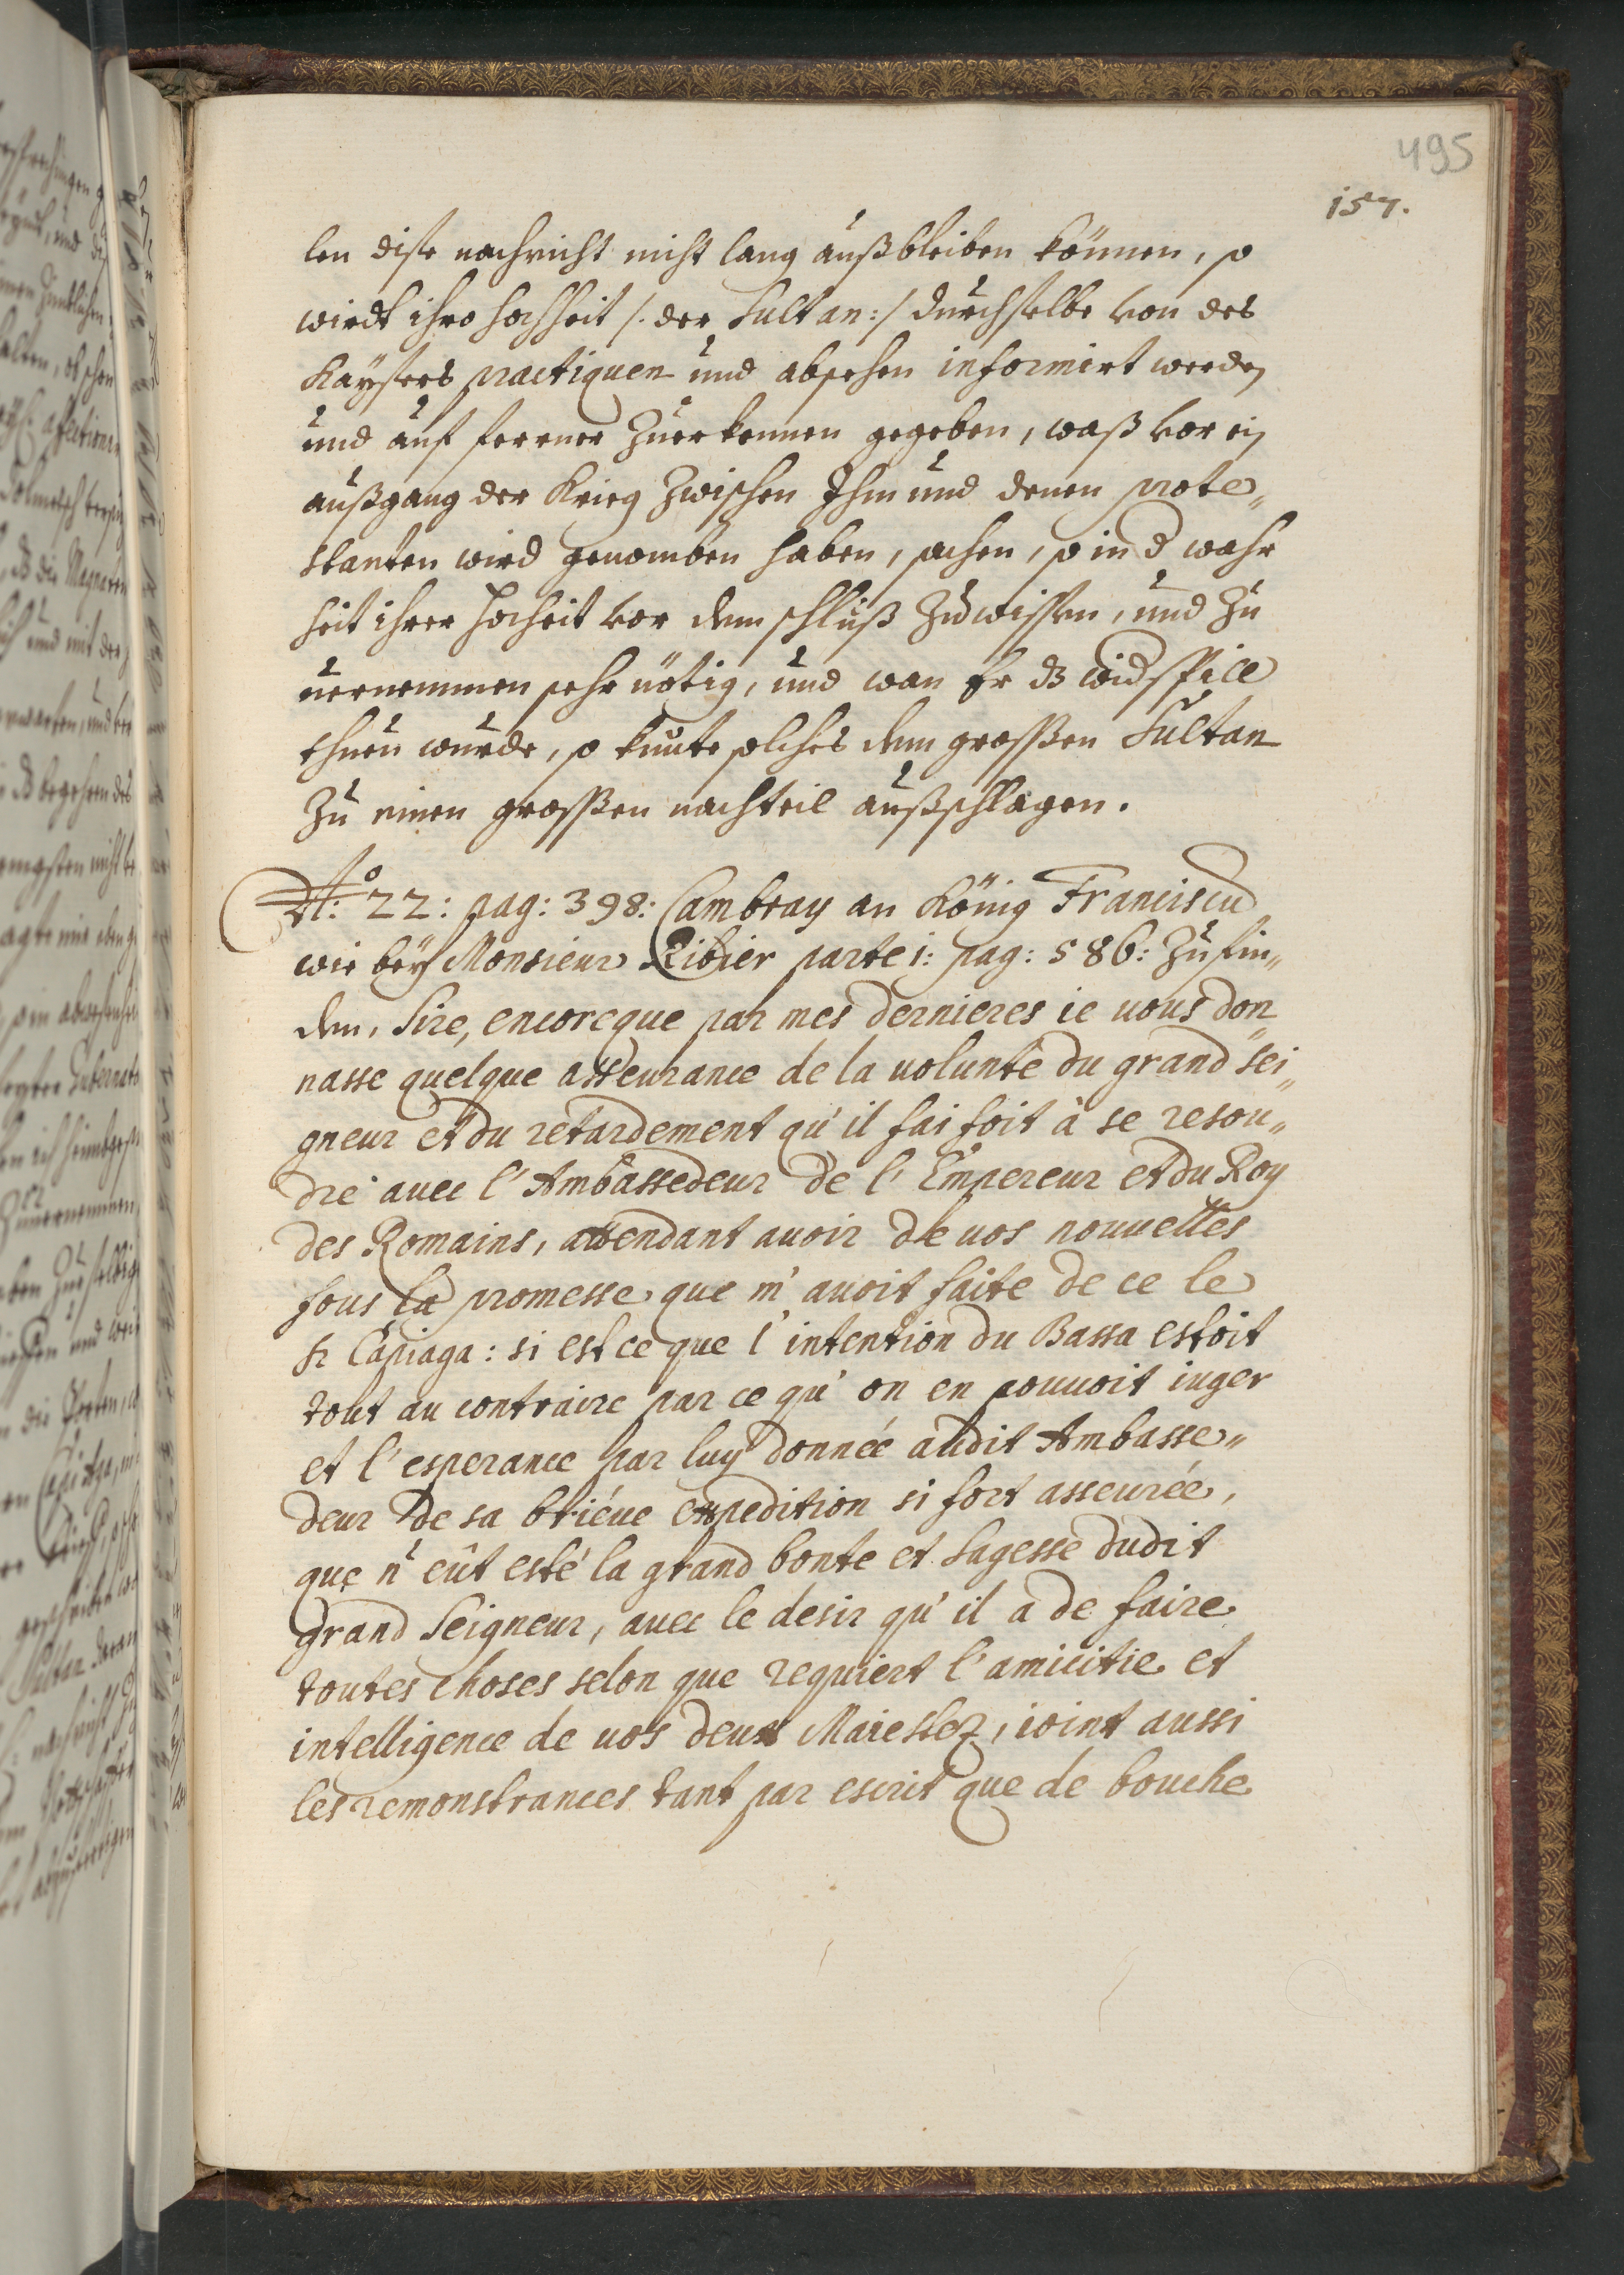 495
157.
len dise nachricht nicht lang außbleiben können, so
wirdt ihro hochheit /: der Sultan :/ durchselbe von des
Kaÿsers practiquen und absehen informirt werden
und auf ferner Zuerkennen gegeben, waß vor ein
außgang der Krieg Zwischen Ihm und denen prote„
stanten wird genomben haben, sachen, so in d wahr
heit ihrer Hocheit vor dem schluß Zu wissen, und Zu
uernemmen sehr nötig, und wan Er dz widspill
thuen wurde, so kunte solches dem grossen Sultan
Zu einen grossen nachteil außschlagen.
No: 22: pag: 398: Cambray an König Franciscu
wie beÿ Monsieur Ribier parte 1: pag: 586: Zu fin„
den, Sire, encoreque par mes dernieres ie uous don„
nasse quelque asseurance de la uolunté du grand sei„
gneur et du retardement qu'il faisoit à se resou„
dre auec l'Ambassedeur de l'Empereur et du Roy
des Romains, attendant auoir de uos nouuelles
sous la promesse que m'auoit faite de ce le
Sr Capiaga: si est ce que l'intention du Bassa estoit
tout au contraire par ce qu'on en pouuoit iuger
et l'esperance par luy donnée audit Ambasse„
deur de sa briéue expedition si fort asseurée,
que n'eût esté la grand bonte et Sagesse dudit
grand Seigneur, auec le desir qu'il a de faire
toutes choses selon que requiert l'amicitie et
intelligence de uos deux Maiestez, ioint aussi
les remonstrances tant par escrit que de bouche